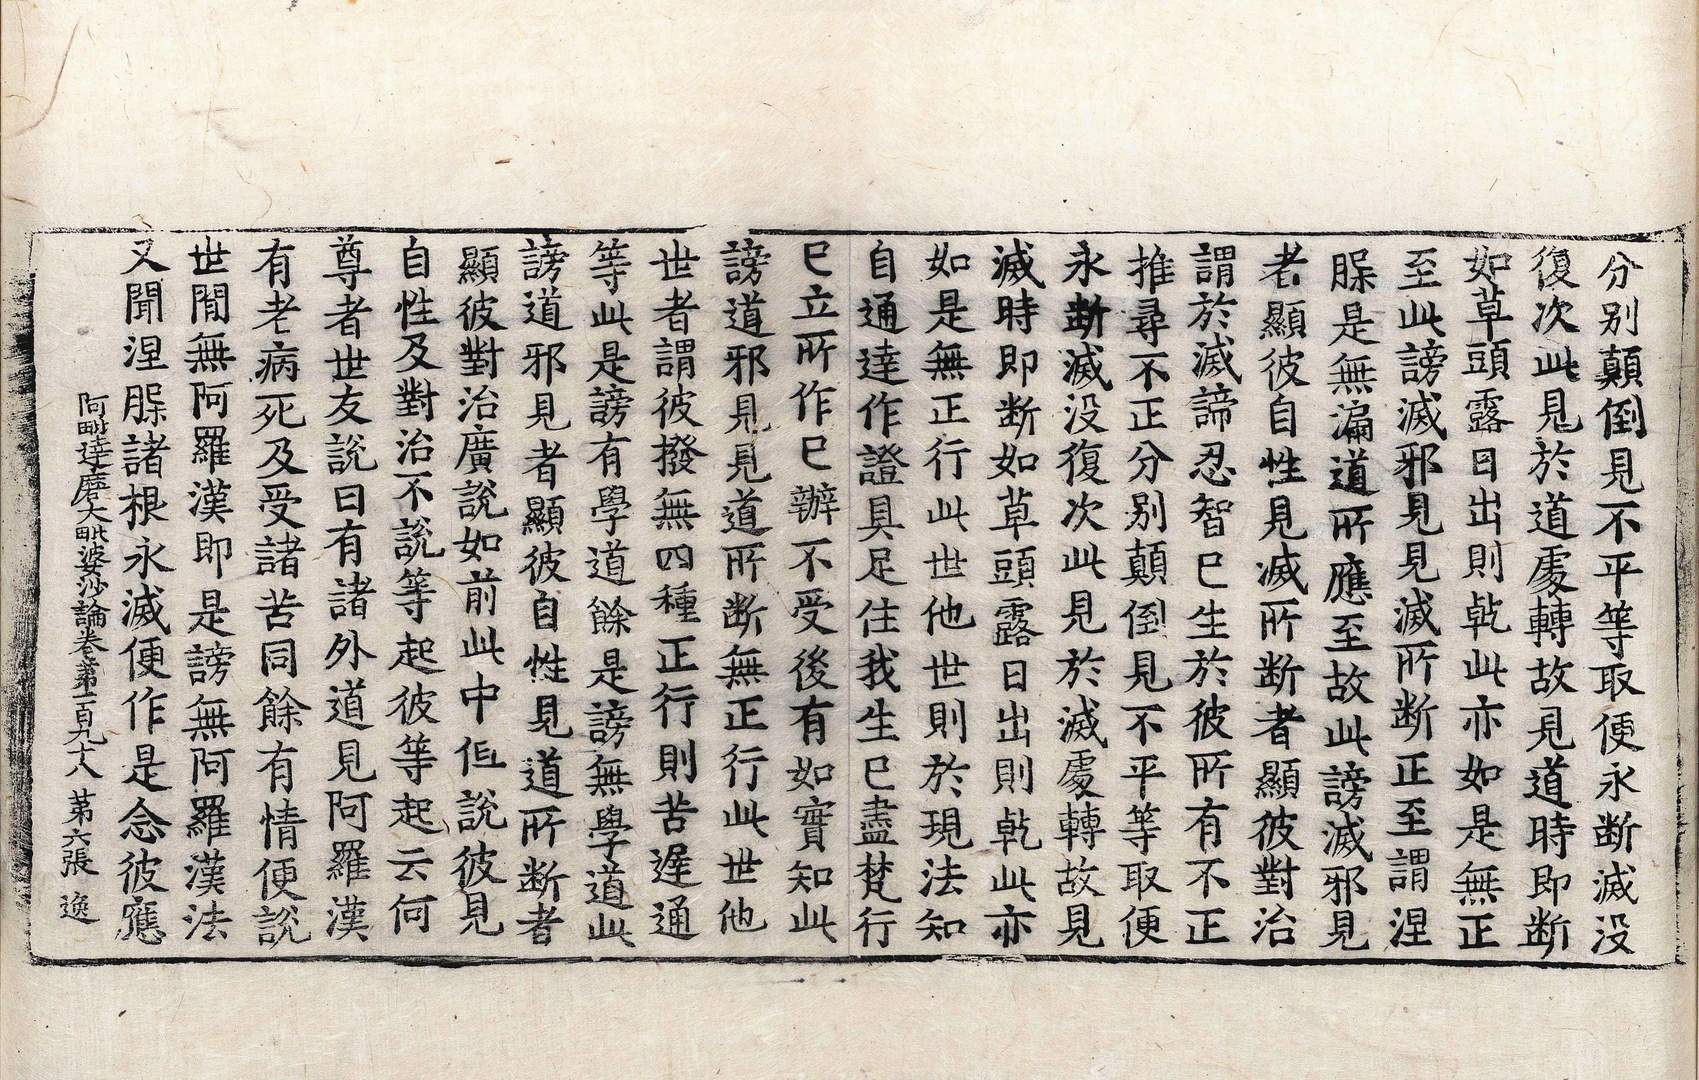 分别顛倒見不平等取便永断滅没
復次此見於道處轉故見道時即断
如草頭露日出則乹此亦如是無正
至此謗滅邪見見滅所断正至謂涅
槃是無漏道所應至故此謗滅邪見
者顯彼自性見滅所断者顯彼對治
謂於滅諦忍智已生於彼所有不正
推尋不正分别顛倒見不平等取便
永断滅没復次此見於滅處轉故見
滅時即断如草頭露日出則乹此亦
如是無正行此世他世則於現法知
自通達作證具足住我生已盡梵行
已立所作已辦不受後有如實知此
謗道邪見見道所断無正行此世他
世者謂彼撥無四種正行則苦遅通
等此是謗有學道餘是謗無學道此
謗道邪見者顯彼自性見道所断者
顯彼對治廣說如前此中但說彼見
自性及對治不說等起彼等起云何
尊者世友說曰有諸外道見阿羅漢
有老病死及受諸苦同餘有情便說
世間無阿羅漢即是謗無阿羅漢法
又聞涅槃諸根永滅便作是念彼應
阿毗達磨大毗婆沙論卷第一百九十八 第六張 逸